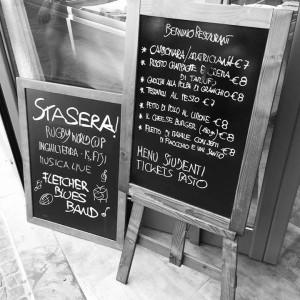 STASERA!
RUGBY WORLD CUP
INGHILTERRA - FIJI
MUSICA LIVE
FLETCHER
BLUES
BAND
BERNINO RESTAURANT
* CARBONARA/AMATRICIANA €7
* RISOTTO CHAMPAGNE E CREMA DI TARTUFI €8
* GNOCCHI ALLA POLPA DI GRANCHIO €8
* TESTAROLI AL PESTO €7
* PETTO DI POLLO AL LIMONE €8
* IL CHEESE BURGER €8
* FILETTO DI MAIALE CON
DI FINOCCHIO E €8
MENU STUDENTI
TICKETS PASTO